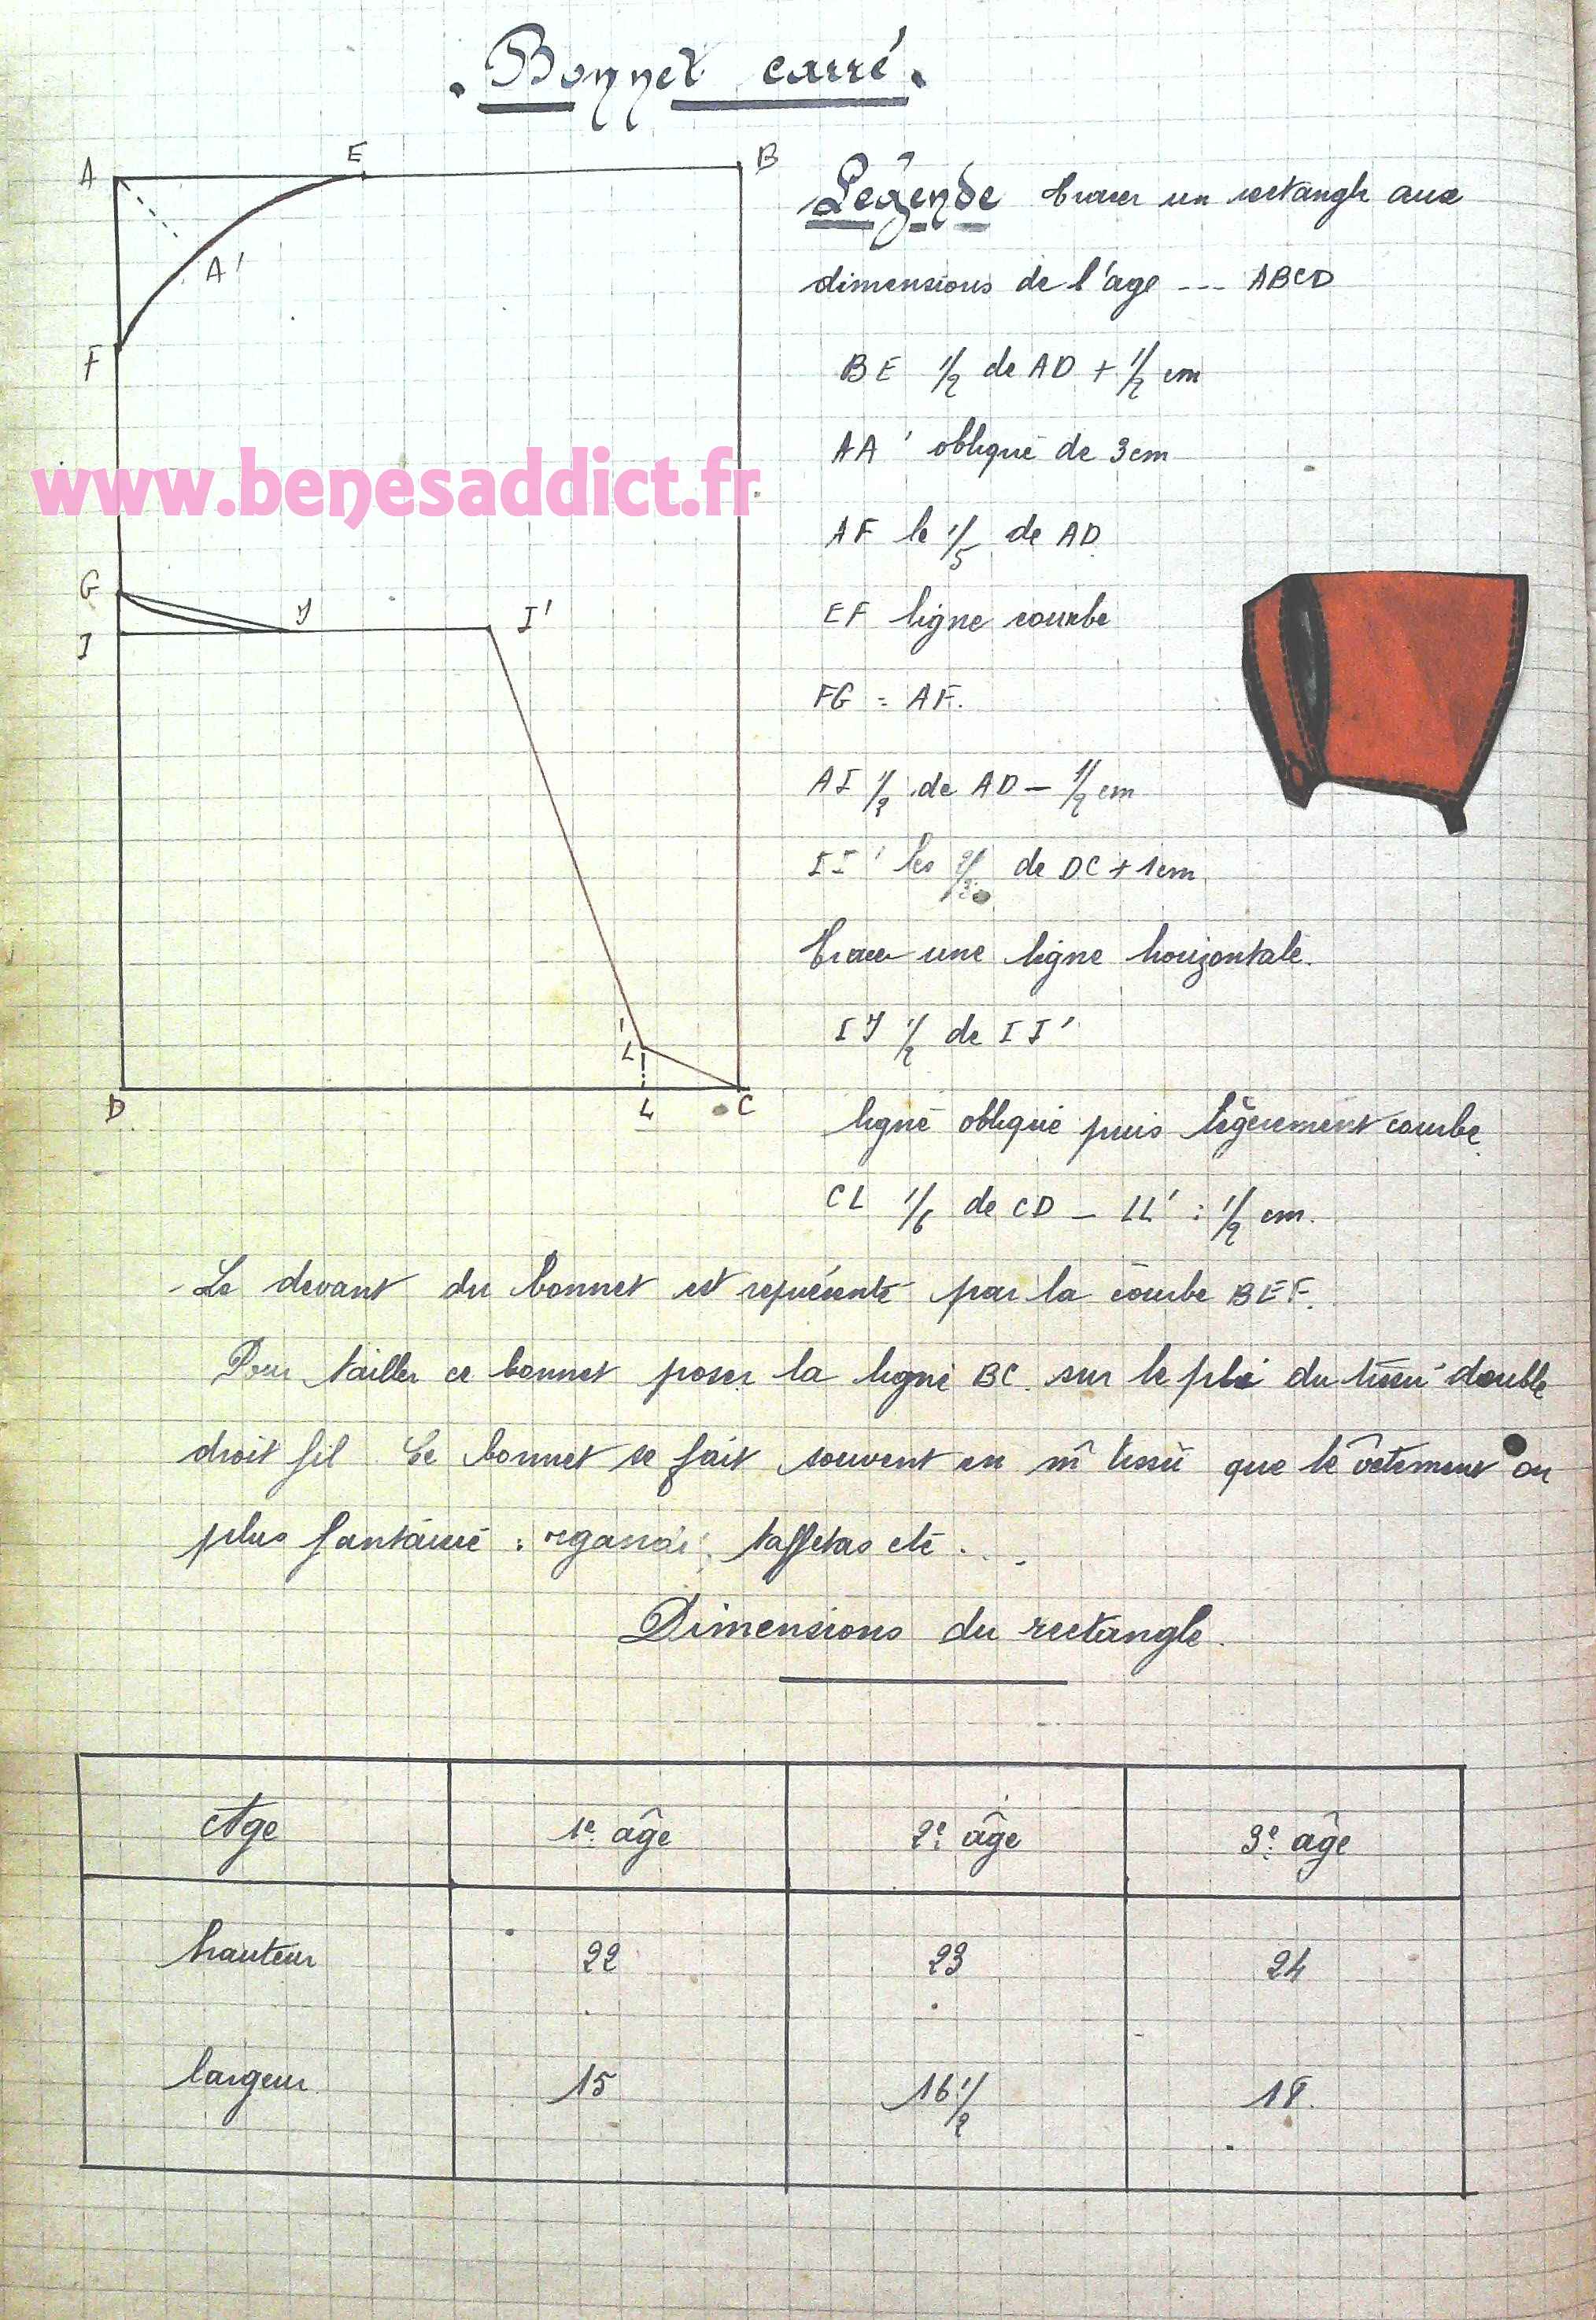 . Bonnet carré.
A
E
B
A'
F
G
J
I
I'
L'
D
L
C
www.benesaddict.fr
Légende Tracer un rectangle aux
dimensions de l'age --- ABCD
BE 1/2 de AD + 1/2 cm
AA' oblique de 3cm
AF le 1/5 de AD
EF ligne courbe
FG = AF.
AI 1/2 de AD - 1/2 cm
II' les 2/3 de DC + 1cm
Tracer une ligne horizontale.
IJ 1/2 de II'
ligne oblique puis légèrement courbe
CL 1/6 de CD - LL' : 1/2 cm.
- Le devant du bonnet est représenté par la courbe BEF.
Pour tailler ce bonnet poser la ligne BC. sur le pli du tissu double
droit fil Ce bonnet se fait souvent en m̂ tissu que le vêtement ou
plus fantaisie : rgandi, taffetas etc ...
Dimensions du rectangle.
Age 1e. âge 2e. âge 3e. âge
hauteur 22 23 24
largeur 15 16 1/2 18.